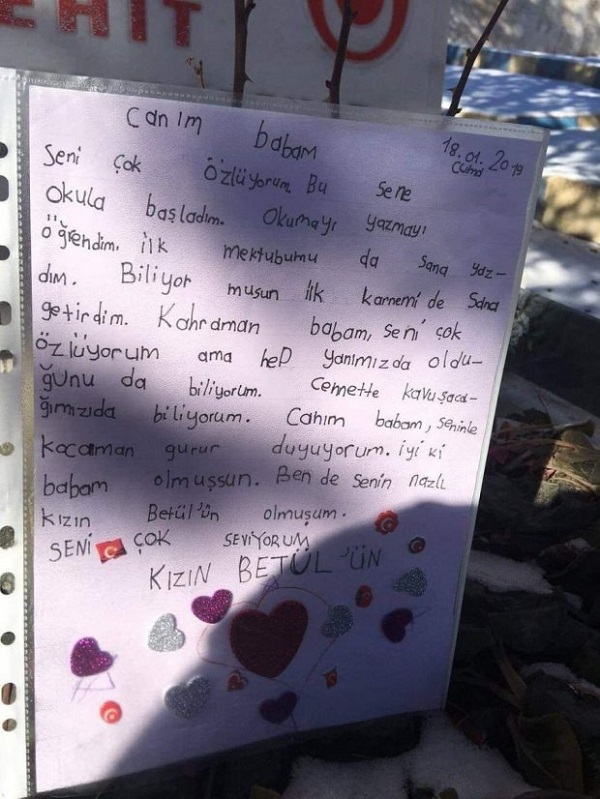 EHİT
Canım babam
18.01.2019
Cuma
Seni çok özlüyorum. Bu sene
okula başladım. Okumayı yazmayı
öğrendim. ilk mektubumu da sana yaz-
dım. Biliyor musun ilk karnemi de sana
getirdim. Kahraman babam, seni çok
özlüyorum ama hep yanımızda oldu-
ğunu da biliyorum. Cennette kavuşaca-
ğımızıda biliyorum. Canım babam, seninle
kocaman gurur duyuyorum. iyi ki
babam olmuşsun. Ben de senin nazlı
kızın Betül'ün olmuşum.
SENİ ÇOK SEVİYORUM
KIZIN BETÜL'ÜN